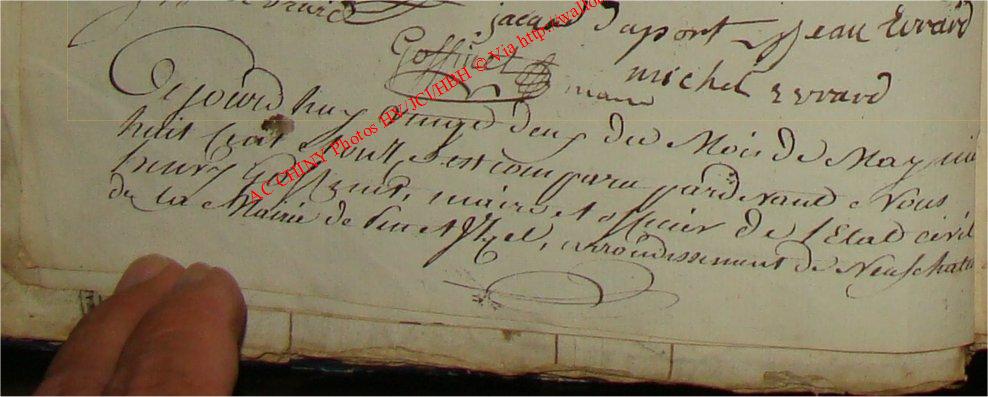 jacque duport jean Evrard
Goffinet
michel Evrard
maire
Cejourd huy vingt deux du Mois de May mil
huit Cent onze, est comparu pardevant Nous
henry Goffinet, maire et officier de l'Etat civil
de la Mairie de Suxet, arrondissement de Neufchatea
AC CHINY Photos HV/JCI/HBH © Via http://wallo